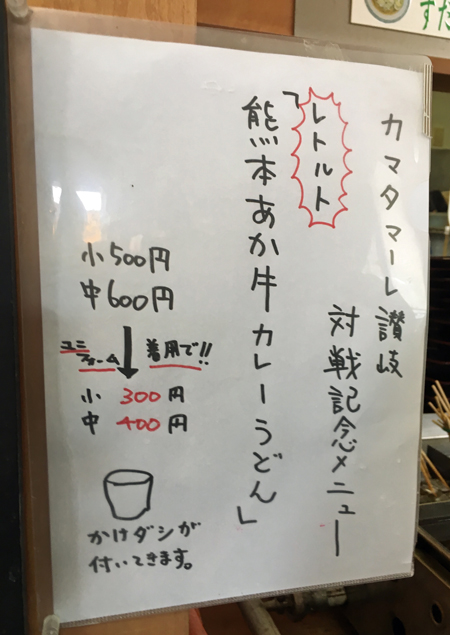 カマタマーレ讃岐
対戦記念メニュー
レトルト
「熊本あか牛カレーうどん」
小500円
中600円
ユニフォーム着用で!!
小 300円
中 400円
かけダシが
付いてきます。
すだ